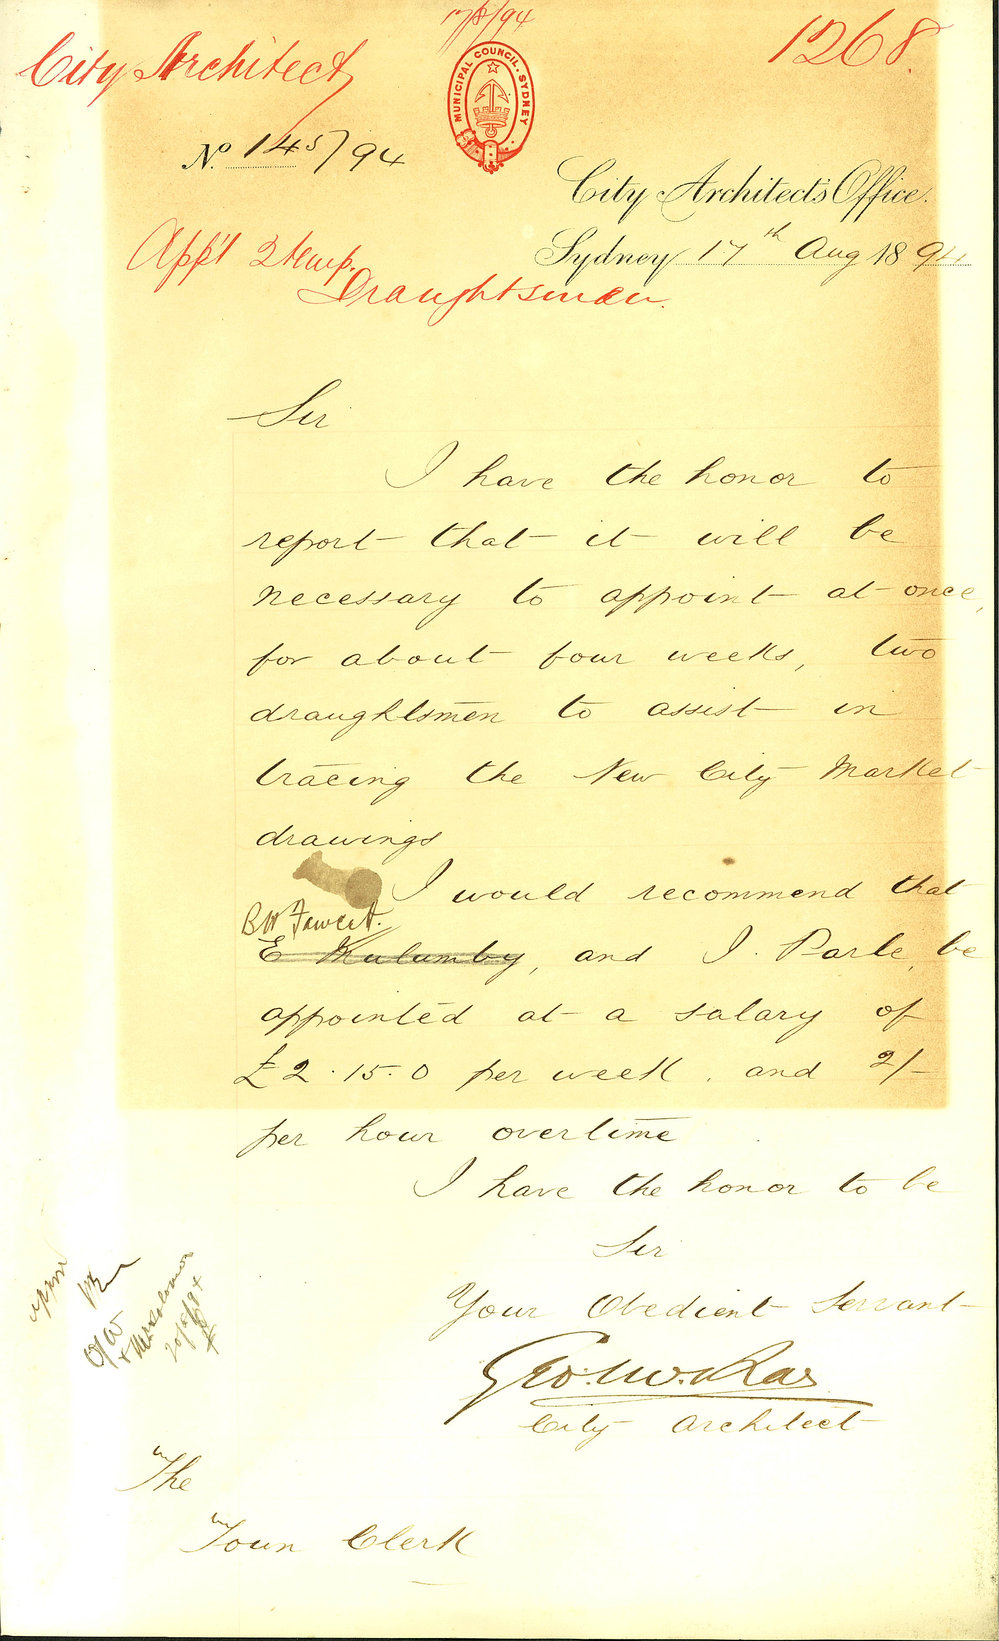 17/8/94
City Architect
1268
MUNICIPAL COUNCIL. SYDNEY
No. 145/94
City Architect's Office.
Sydney 17th Aug 1894
App't 2 temp.
Draughtsmen.
Sir
I have the honor to
report that it will be
necessary to appoint at once,
for about four weeks, two
draughtsmen to assist in
tracing the New City Market
drawings
I would recommend that
B W Fawcett.
E Mulumby, and J. Parle, be
appointed at a salary of
£2.15.0 per week, and 2/-
per hour overtime
I have the honor to be
Sir
Your Obedient Servant
Geo. McRae
City Architect
The
Town Clerk